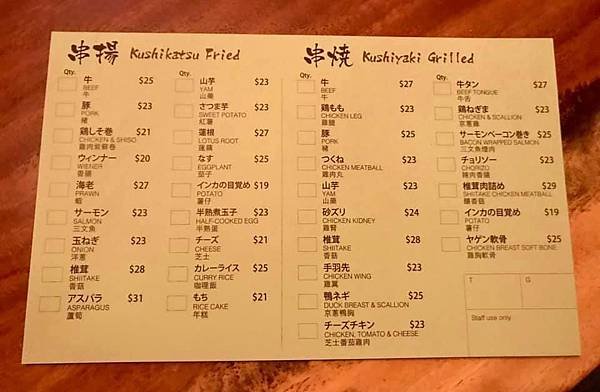 串揚 Kushikatsu Fried
Qty.
牛 $25
BEEF
牛
豚 $23
PORK
豬
鶏しそ巻 $21
CHICKEN & SHISO
雞肉紫蘇卷
ウィンナー $20
WIENER
香腸
海老 $27
PRAWN
蝦
サーモン $23
SALMON
三文魚
玉ねぎ $23
ONION
洋蔥
椎茸 $28
SHIITAKE
香菇
アスパラ $31
ASPARAGUS
蘆筍
Qty.
山芋 $23
YAM
山藥
さつま芋 $23
SWEET POTATO
紅薯
蓮根 $27
LOTUS ROOT
蓮藕
なす $25
EGGPLANT
茄子
インカの目覚め $19
POTATO
薯仔
半熟煮玉子 $23
HALF-COOKED EGG
半熟蛋
チーズ $21
CHEESE
芝士
カレーライス $25
CURRY RICE
咖喱飯
もち $21
RICE CAKE
年糕
串焼 Kushiyaki Grilled
Qty.
牛 $27
BEEF
牛
鶏もも $23
CHICKEN LEG
雞腿
豚 $25
PORK
豬
つくね $23
CHICKEN MEATBALL
雞肉丸
山芋 $23
YAM
山藥
砂ズリ $24
CHICKEN KIDNEY
雞腎
椎茸 $28
SHIITAKE
香菇
手羽先 $23
CHICKEN WING
雞翼
鴨ネギ $25
DUCK BREAST & SCALLION
京蔥鴨胸
チーズチキン $23
CHICKEN, TOMATO & CHEESE
芝士番茄雞肉
Qty.
牛タン $27
BEEF TONGUE
牛舌
鶏ねぎま $23
CHICKEN & SCALLION
京蔥雞
サーモンベーコン巻き $25
BACON WRAPPED SALMON
三文魚煙肉
チョリソー $23
CHORIZO
辣肉香腸
椎茸肉詰め $29
SHIITAKE CHICKEN MEATBALL
釀香菇
インカの目覚め $19
POTATO
薯仔
ヤゲン軟骨 $25
CHICKEN BREAST SOFT BONE
雞胸軟骨
T G
Staff use only